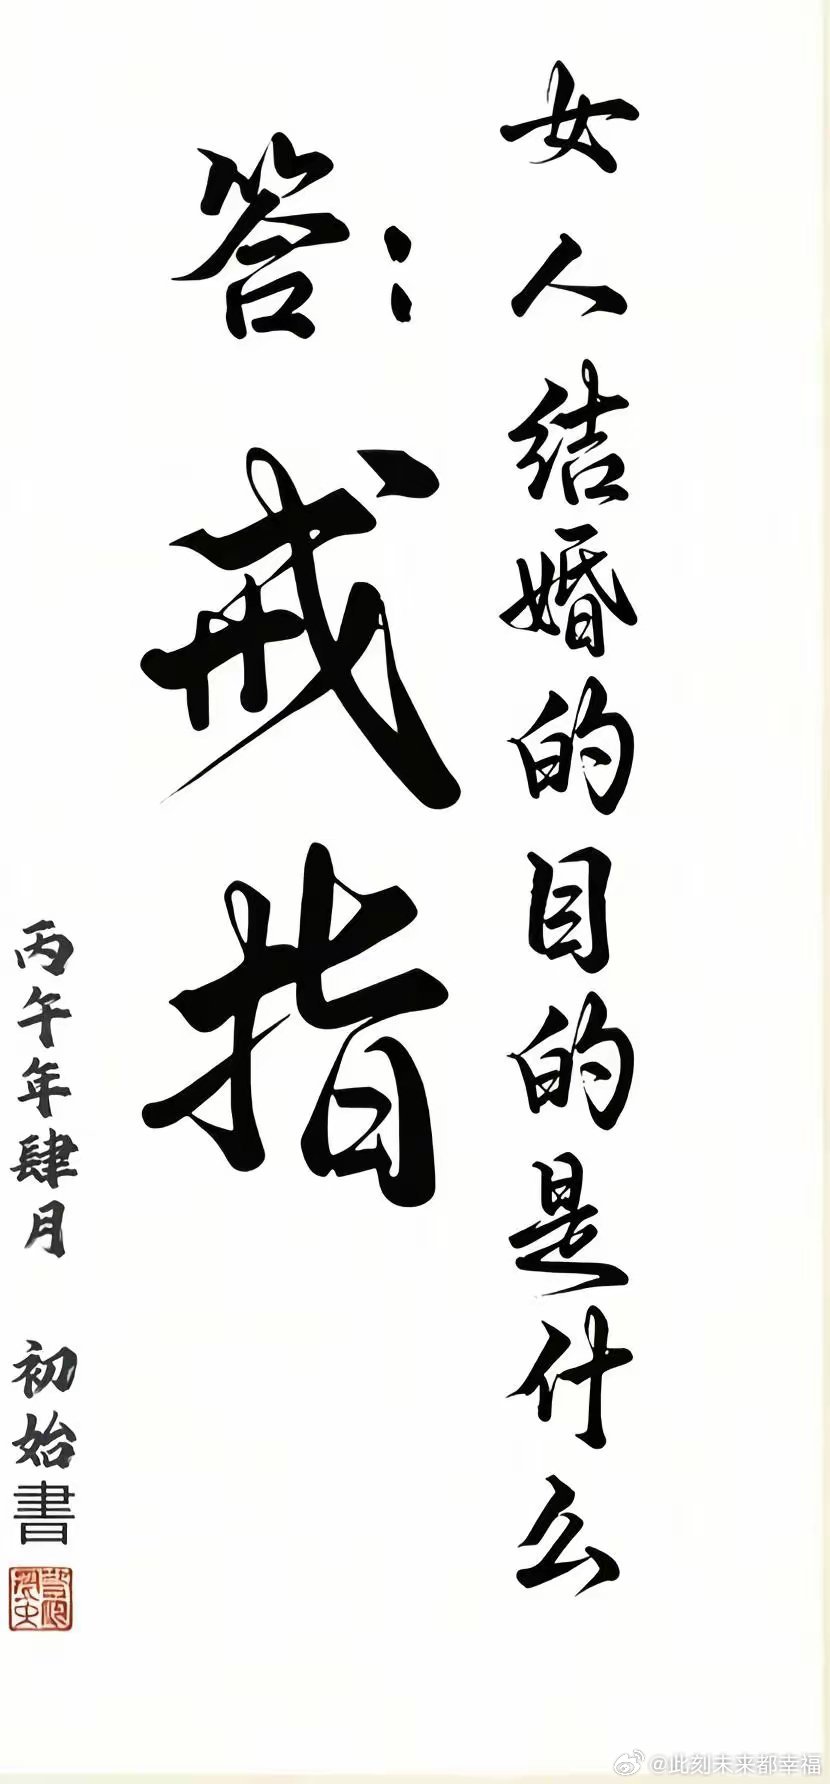 女人结婚的目的是什么
答：
戒指
丙午年肆月 初始書
@此刻未来都幸福